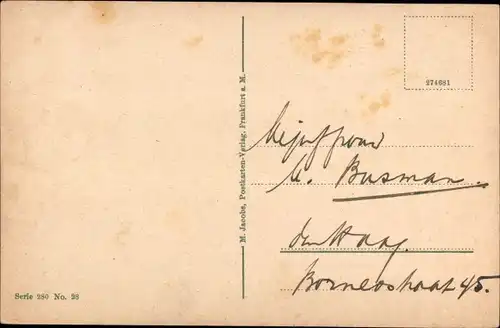 274681
Mejuffrouw
M. Busman.
den Haag.
Borneostraat 45.
M. Jacobs, Postkarten-Verlag, Frankfurt a. M.
Serie 280 No. 28